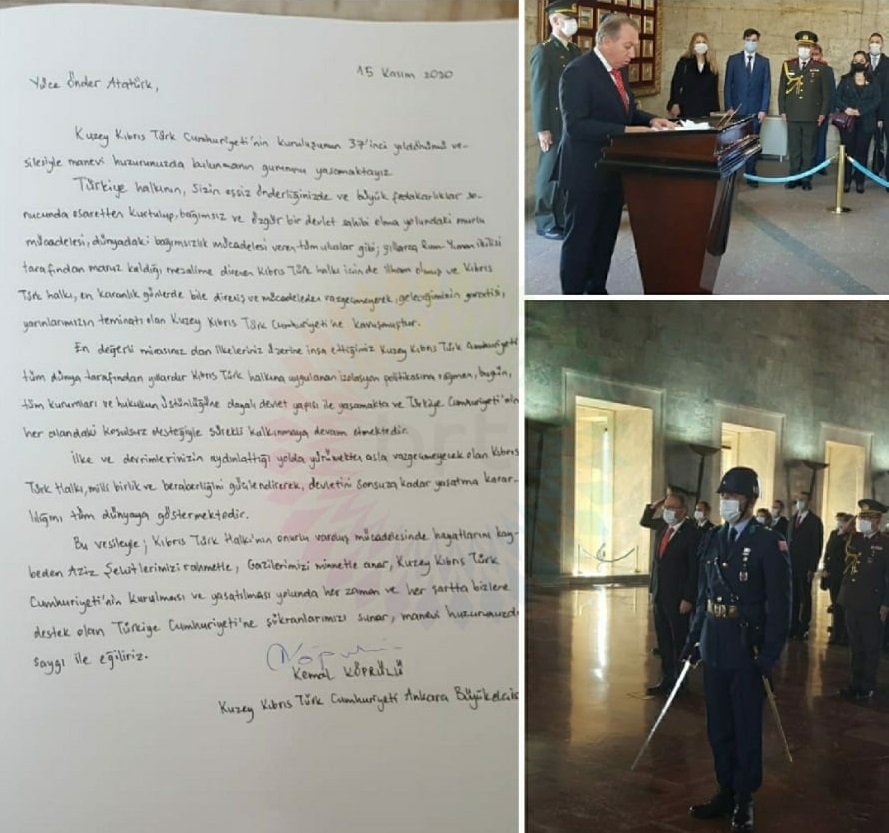 15 Kasım 2020
Yüce Önder Atatürk,
Kuzey Kıbrıs Türk Cumhuriyeti'nin kuruluşunun 37'inci yıldönümü ve-
silesiyle manevi huzurunuzda bulunmanın gururunu yaşamaktayız.
Türkiye halkının, sizin eşsiz önderliğinizde ve büyük fedakarlıklar so-
nucunda esaretten kurtulup, bağımsız ve özgür bir devlet sahibi olma yolundaki onurlu
mücadelesi, dünyadaki bağımsızlık mücadelesi veren tüm uluslar gibi; yıllarca Rum-Yunan ikilisi
tarafından maruz kaldığı mezalime direnen Kıbrıs Türk halkı için de ilham olmuş ve Kıbrıs
Türk halkı, en karanlık günlerde bile direniş ve mücadeleden vazgeçmeyerek, geleceğimizin garantisi,
yarınlarımızın teminatı olan Kuzey Kıbrıs Türk Cumhuriyeti'ne kavuşmuştur.
En değerli mirasınız olan ilkeleriniz üzerine inşa ettiğimiz Kuzey Kıbrıs Türk Cumhuriyeti
tüm dünya tarafından yıllardır Kıbrıs Türk halkına uygulanan izolasyon politikasına rağmen, bugün,
tüm kurumları ve hukukun üstünlüğüne dayalı devlet yapısı ile yaşamakta ve Türkiye Cumhuriyeti'nin
her alandaki koşulsuz desteğiyle sürekli kalkınmaya devam etmektedir.
İlke ve devrimlerinizin aydınlattığı yolda yürümekten asla vazgeçmeyecek olan Kıbrıs
Türk Halkı, milli birlik ve beraberliğini güçlendirerek, devletini sonsuza kadar yaşatma karar-
lılığını tüm dünyaya göstermektedir.
Bu vesileyle; Kıbrıs Türk Halkı'nın onurlu varoluş mücadelesinde hayatlarını kay-
beden Aziz Şehitlerimizi rahmetle, Gazilerimizi minnetle anar, Kuzey Kıbrıs Türk
Cumhuriyeti'nin kurulması ve yaşatılması yolunda her zaman ve her şartta bizlere
destek olan Türkiye Cumhuriyeti'ne şükranlarımızı sunar, manevi huzurunuzda
saygı ile eğiliriz.
Kemal KÖPRÜLÜ
Kuzey Kıbrıs Türk Cumhuriyeti Ankara Büyükelçisi